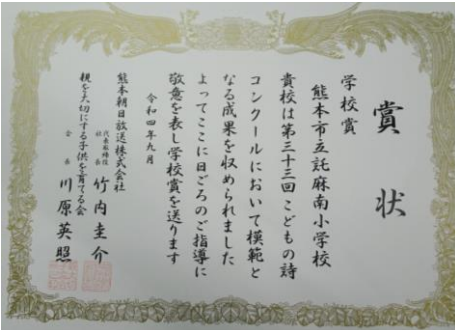 賞状
学校賞
熊本市立託麻南小学校
貴校は第三十三回こどもの詩
コンクールにおいて模範と
なる成果を収められました
よってここに日ごろのご指導に
敬意を表し学校賞を送ります
令和四年九月
熊本朝日放送株式会社
代表取締役
社長
竹内圭介
親を大切にする子供を育てる会
会長
川原英照